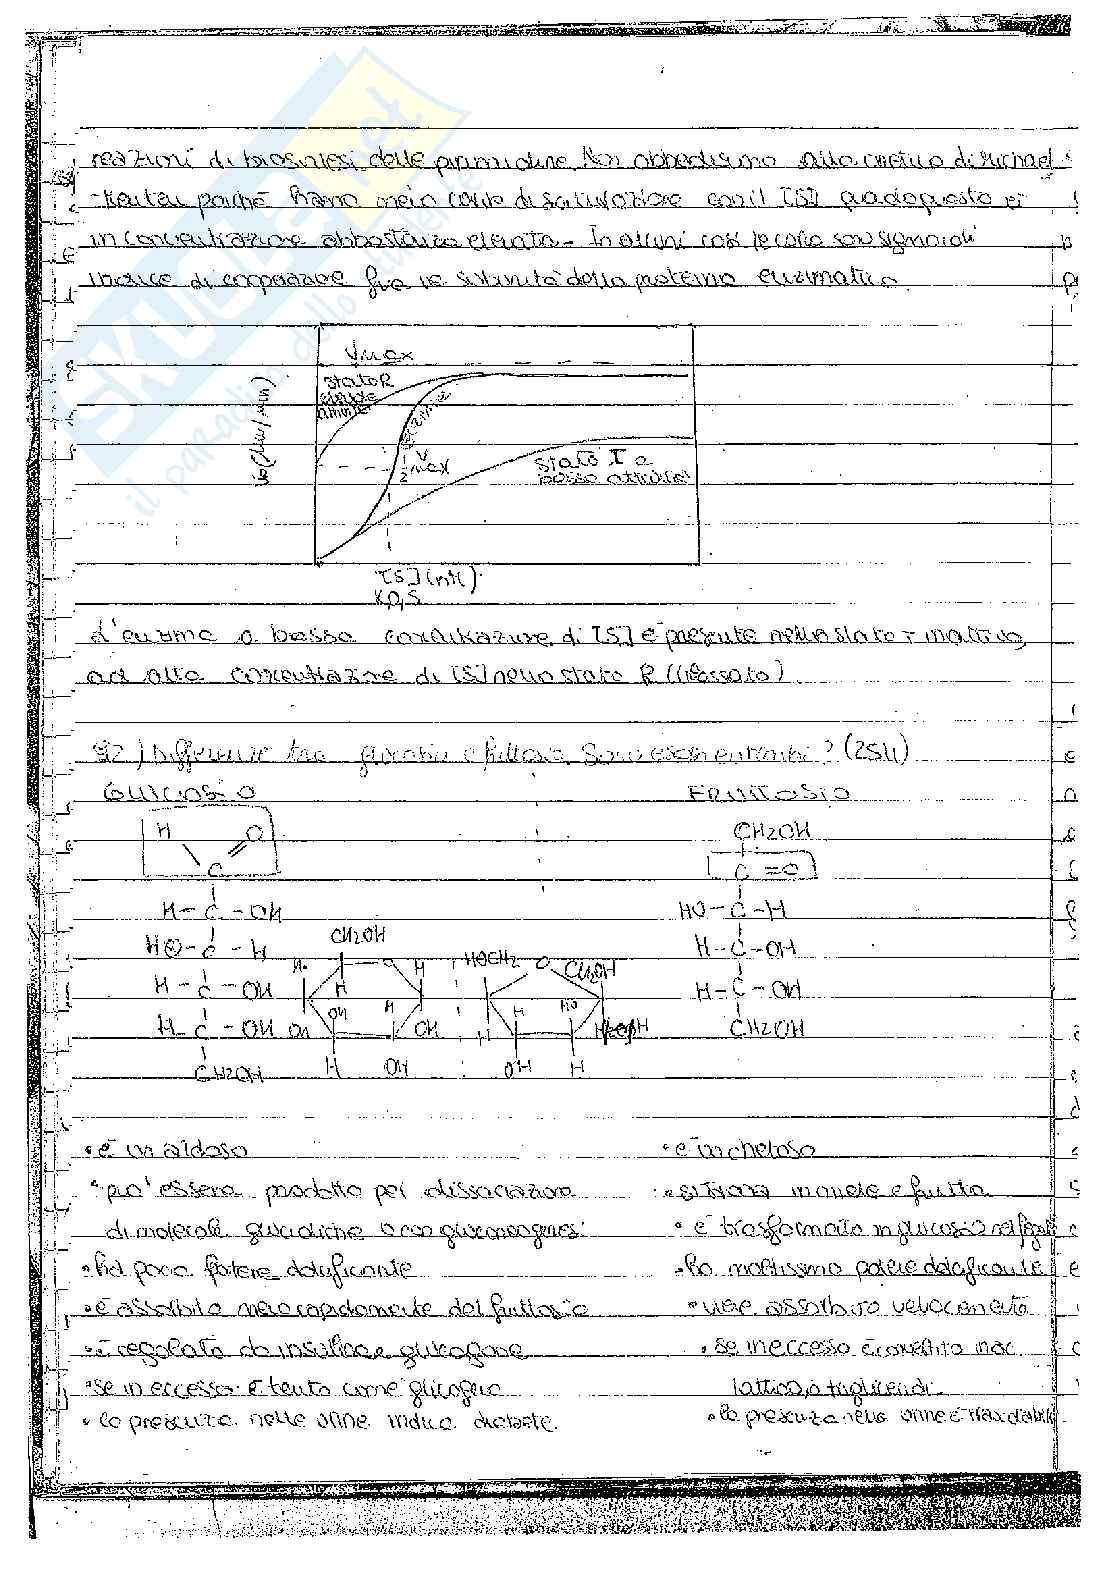 reazioni di biosintesi delle pirimidine. Non obbediscono alla cinetica di Michael
-Menten poiché hanno una curva di saturazione con il [S] quando questo è
in concentrazione abbastanza elevata - In alcuni casi le curve son sigmoidi
indice di cooperazione fra le subunità della proteina enzimatica.
Vmax
stato R
elevate
affinità
Vo (μM/min)
½ Vmax
stato T a
bassa affinità
[S] (mM)
K0,5
L'enzima a bassa concentrazione di [S] è presente nello stato T inattivo,
ad alta concentrazione di [S] nello stato R (rilassato).
92) Differenze tra glucosio e fruttosio. Sono enantiomeri? (254)
GLUCOSIO FRUTTOSIO
H O CH2OH
C C =O
H-C-OH HO-C-H
HO-C-H CH2OH HOCH2 O CH2OH H-C-OH
H-C-OH H O H H H HO H-C-OH
H-C-OH OH OH H OH H CH2OH
CH2OH H OH OH H
• è un aldoso • è un chetoso
• può essere prodotto per dissociazione • si trova in miele e frutta
di molecole glucidiche o con gluconeogenesi • è trasformato in glucosio nel fegato
• ha poco potere dolcificante • ha moltissimo potere dolcificante
• è assorbito meno rapidamente del fruttosio • viene assorbito velocemente
• è regolato da insulina e glucagone • se in eccesso è convertito in ac.
• se in eccesso è tenuto come glicogeno lattico, o trigliceridi.
• la presenza nelle urine indica diabete. • la presenza nelle urine è
skuola.net
il paradiso dello studente